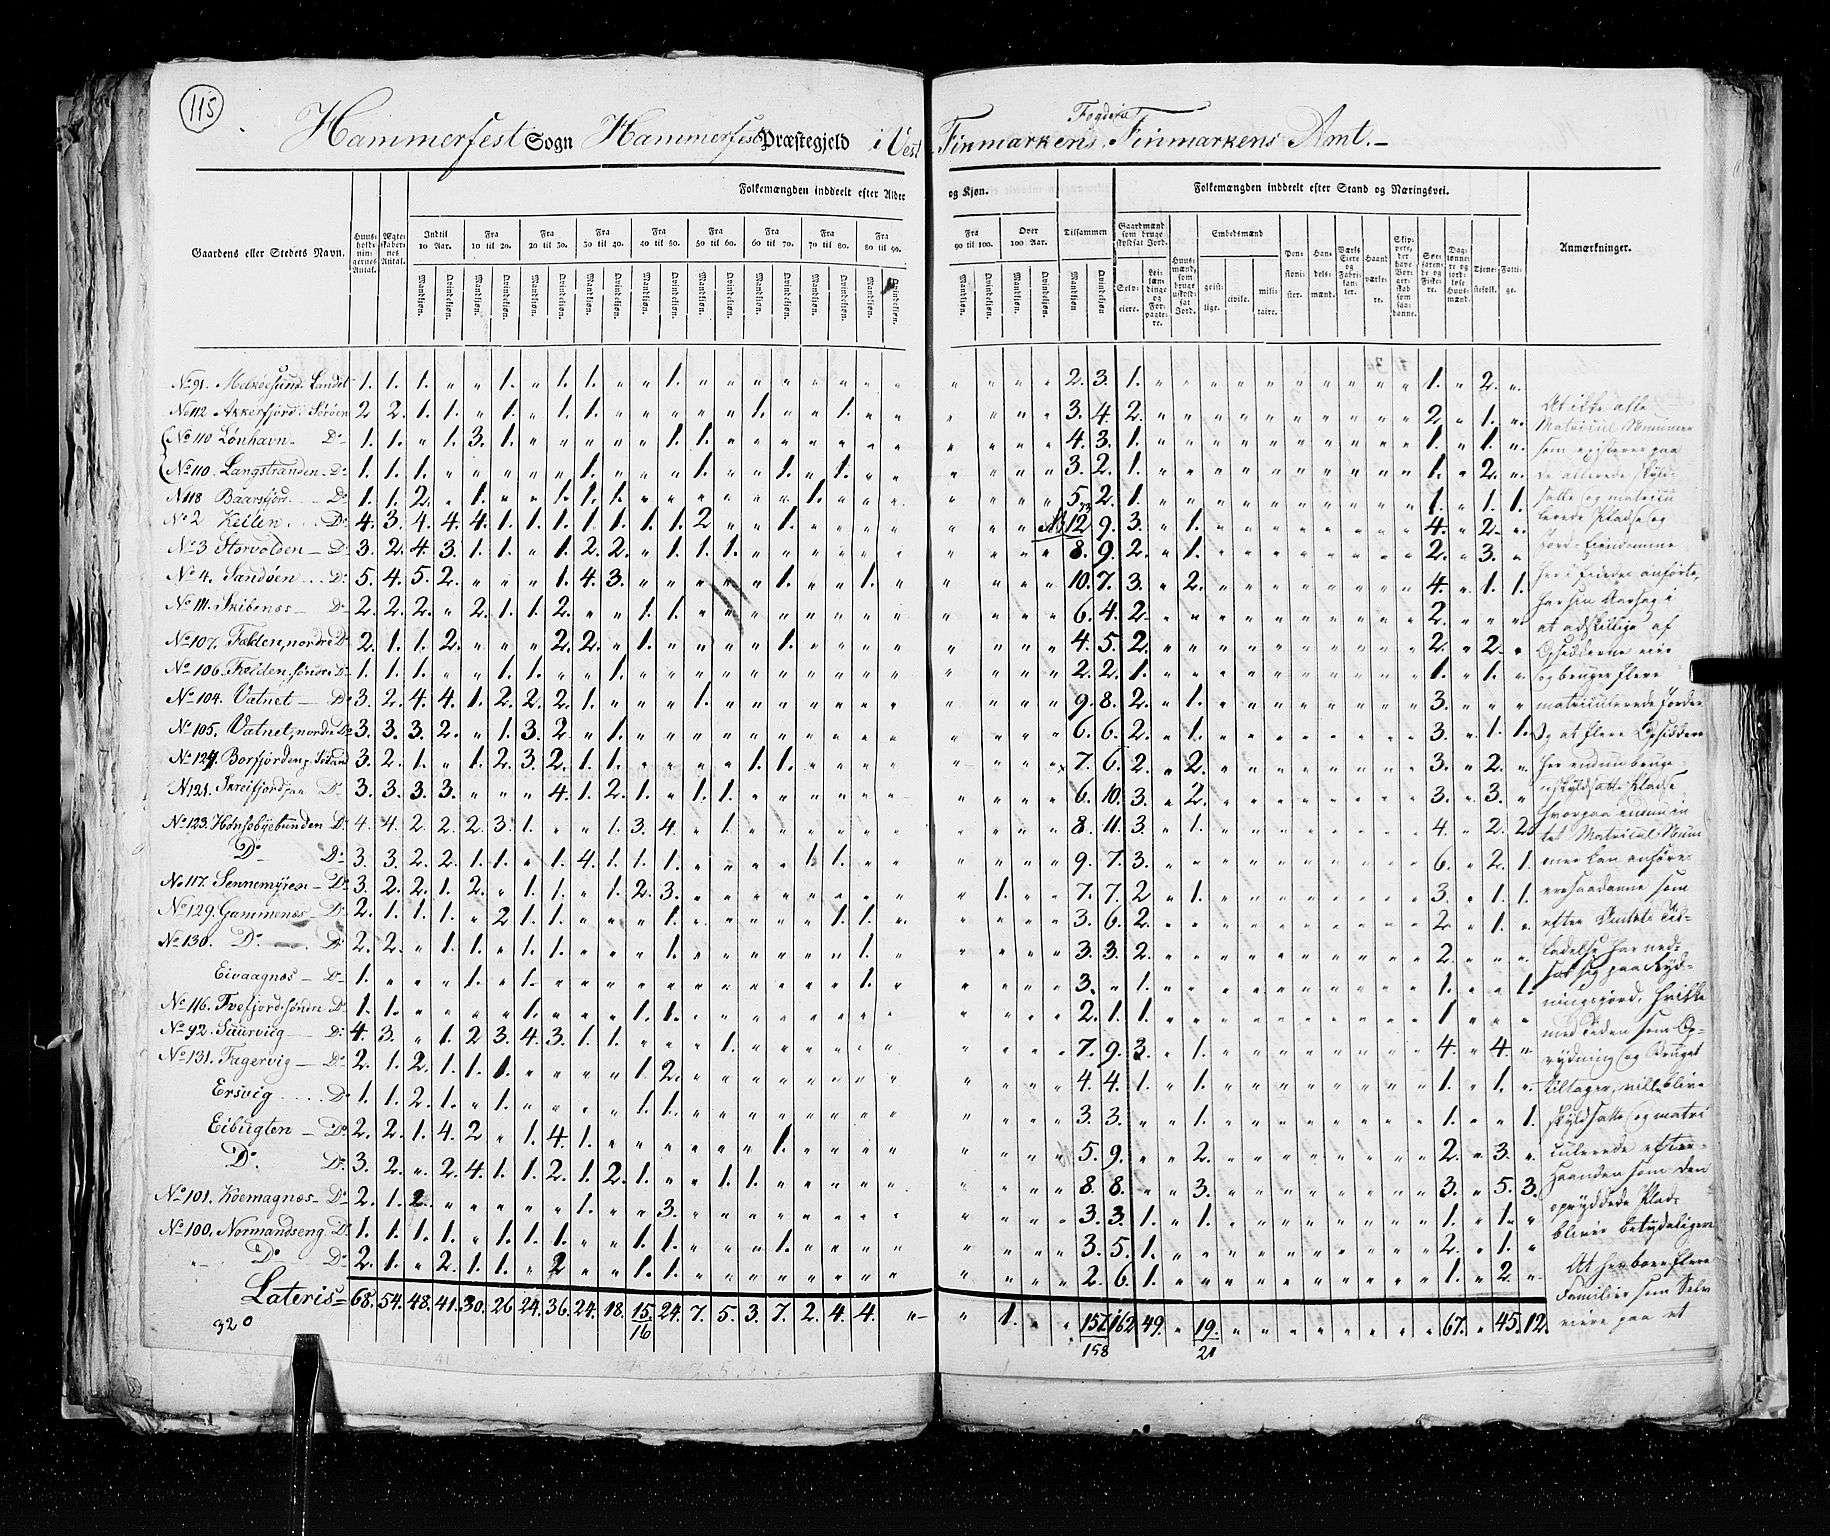 115
Hammerfest Sogn Hammerfest Præstegjeld i Vest Finmarkens Fogderie Finmarkens Amt.
Folkemængden inddeelt efter Alder og Kjøn.
Folkemængden inddeelt efter Stand og Næringsvei.
Gaardens eller Stedets Navn.
Huusholdningernes Antal.
Ægteskabernes Antal.
Indtil 10 Aar.
Fra 10 til 20.
Fra 20 til 30.
Fra 30 til 40.
Fra 40 til 50.
Fra 50 til 60.
Fra 60 til 70.
Fra 70 til 80.
Fra 80 til 90.
Fra 90 til 100.
Over 100 Aar.
Tilsammen
Mandkjøn. Qvindekjøn.
Gaardmænd som bruge skyldsat Jord.
Selveiere.
Leilændinge og Forpagtere.
Huusmænd, som bruge uskyldsat Jord.
Embedsmænd
geistlige. civile. militaire.
Pensionister.
Handelsmænd.
Værks Eiere og Fabrikanter.
Haandværkere.
Skippere, der have Borgerskab som saadanne.
Søefarende og Fiskere.
Daglønnere og jordløse Huusmænd.
Tjenestefolk.
Fattige.
Anmærkninger.
No 91. Melkøesund. Landet 1. 1. 1. " " 1. " 1. 1. " " 1. " " " " " " " " " " " " 2. 3. 1. " " " " " " " " " " 1. " 2. "
No 112 Akkerfjord. Sørøen 2 2. 1. 1. " 1. " 1. 1. " " " " " 1. " " 1. " " " " " " 3. 4. 2. " " " " " " " " " " 2. " 1. "
No 110 Lønhavn Do 1. 1. " 1. 3. 1. " " " " 1. 1. " " " " " " " " " " " " 4. 3. 1. " " " " " " " " " " 1. " 1. "
No 110. Langstranden Do 1. 1. 1. " " " " " 1. " " " 1. " " 1. " 1. " " " " " " 3. 2. 1. " " " " " " " " " " 1. " 2. "
No 118 Baarsfjord Do 1. 1. 2. " 1. " " 1. 1. 1. " " " " " " 1. " " " " " " " 5. 2. 1. " " " " " " " " " " 1. " 1. 1.
No 2 Keilen Do 4. 3. 4. 4. 4. 1. 1. 1. 1. 1. 1. 1. 2 " " 1. " " " " " " " 12 9. 3. " 1. " " " " " " " " 4. " 2. "
No 3 Storvolden Do 3. 2. 4. 3. 1. 1. " 1. 2. 2. " 1. 1. 1. " " " " " " " " " " 8. 9. 2. " 1. " " " " " " " " 2. " 3. "
No 4. Sandøen Do 5. 4. 5. 2. " " " 1. 4. 3. " " " " " 1. " " 1. " " " " " 10. 7. 3. " 2. " " " " " " " " 4. " 1. 1.
No 111. Skibenæs Do 2. 2. 2. " 2. 1. 1. 2. " " 1. 1. " " " " " " " " " " " " 6. 4. 2. " " " " " " " " " " 2. " " "
No 107. Falden, nordre Do 2. 1. 1. 2. " " " 2. 2. " 1. " " " " 1. " " " " " " " " 4. 5. 2. " " " " " " " " " " 2. " 2. "
No 106. Falden, søndre Do 1. 1. 1. " " 1. 1. " " 1. " " " " " " " " " " " " " " 2. 2. 1. " " " " " " " " " " 1. " 1. "
No 104. Vatnet Do 3. 2. 4. 4. 1. 2. 2. 2. 1. " " " 1. " " " " " " " " " " " 9. 8. 2. " 1. " " " " " " " " 3. " " "
No 105. Vatnet, nordre Do 3. 3. 3. 2. " 1. 3. 2. " 1. " " " " " " " " " " " " " " 6. 6. 2. " 1. " " " " " " " " 3. " 1. 1.
No 124. Borfjorden 3. 2. 1. " 1. 2. 3. 2. 1. 1. " " " " 1. 1. " " " " " " " " 7. 6. 2. " 2. " " " " " " " " 3. " 2. "
No 121. Skreifjord Do 3. 3. 3. 3. " " " 4. 1. 2. 1. " 1. 1. " " " " " " " " " " 6. 10. 3. " 2. " " " " " " " " 3. " 3. "
No 123. Hønsebyebunden Do 4. 4. 2. 2. 2. 3. 1. " " 1. 3. 4. " 1. " " " " " " " " " " 8. 11. 3. " 1. " " " " " " " " 4. " 2. 2.
Do Do 3. 3. 2. 2. 1. 1. " 1. 4. 1. 1. 1. " " " " 1. 1. " " " " " " 9. 7. 3. " " " " " " " " " " 6. " 2. 1.
No 117. Sennemyren Do 3. 2. 2. 1. 2. " 1. 1. " 1. 2. 3. " " " " " " " " " 1. " " 7. 7. 2 " 1. " " " " " " " " 3. " 1. 1.
No 129. Gammenæs Do 2. 1. 1. 1. " 2 1. 1. " " " 1. " " " " " 1. 1. " " " " " 3. 6. 2. " " " " " " " " " " 2. " 1. "
No 130. Do Do 2. 2. " 1. 1. " 1. 1. " " " 1. " " " " " " 1. " " " " " 3. 3. 2. " " " " " " " " " " 2. " " "
Eivaagnæs Do 1. " " " 1. " 1. " " " " " " " " " " " 1. " " " " " 3. " 1. " " " " " " " " " " 1. " " 1.
No 116. Tvefjord, søndre Do 1. 1. " " " " 1. " " " 1. 1. " " " " " " " " " " " " 2. 1. 1. " " " " " " " " " " 1 " " "
No 92. Suurviig Do 4. 3. " 1. 2 3. 4. 3. 1. 1. " " " 1. " " " " " " " " " " 7. 9. 3. " 1. " " " " " " " " 4. " 4. "
No 131. Fagervig Do 2. 1. 2. 1. 1. 1. " " " " 1. 2. " " " " " " " " " " " " 4. 4. 1. " 1. " " " " " " " " 1. " 1. "
Ersvig Do 1. 1. 2. 1. " 1. " " " " 1. 1. " " " " " " " " " " " " 3. 3. " " 1. " " " " " " " " 1. " " 1.
Eibugten Do 2. 2. 1. 4. 2 " 1. 4. 1. " " " " " " 1. " " " " " " " " 5. 9. " " 2. " " " " " " " " 2. " 3. "
Do Do 3. 2. " 2. 4. 1. 1. 2. 1. 2. 1. " " 1. 1. " " " " " " " " " 8. 8. " " 3. " " " " " " " " 3. " 5. 3.
No 101. Koemagnæs Do 2. 1. 2. " " " " " 1. " " 3. " " " " " " " " " " " " 3. 3. 1. " 1. " " " " " " " " 1. " 1. "
No 100. Normandseng Do 1. 1. 1. 1. " 1. 1. 1. " " 1. 1. " " " 1. " " " " " " " " 3. 5. 1. " " " " " " " " " " 2. " 1. "
Do Do 2. 1. " 2. 1. 1. " 2 " " 1. 1. " " " " " " " " " " " " 2. 6. 1. " " " " " " " " " " 1. " 2. "
Lateris 68. 54. 48. 41. 30. 26 24. 36. 24. 18. 15. 24. 7. 5. 3. 7. 2. 4. 4. " " 1. " " 157 162 49. " 19. " " " " " " " " 67. " 45. 12.
320 16 158 21
At ikke alle
Matricul Nummere
som existerer paa
de allerede skyld-
satte og matricu
lerede Pladse og
Jord-Eiendomme
her i Friedet anførte,
har sin Aarsag i
at adskillige af
Opsidderne eier
og bruger flere
matriculerede Jorder
Og at flere Opsiddere
her endnu bruge
uskyldsatte Pladse
hvorpaa endnu in
tet Matricul-Num
mer kan anføres
ere saadanne som
efter Amtets Til-
ladelse har ned-
sat sig paa Ryd-
ningsjord, hvilke
med Tiden som Op-
rydning og Bruget
tiltager, ville blive
skyldsatte og matri
culerede efter-
haanden som den
opryddede Plads
bliver betydeligere
At her boer flere
Familier som Selv
eiere paa et